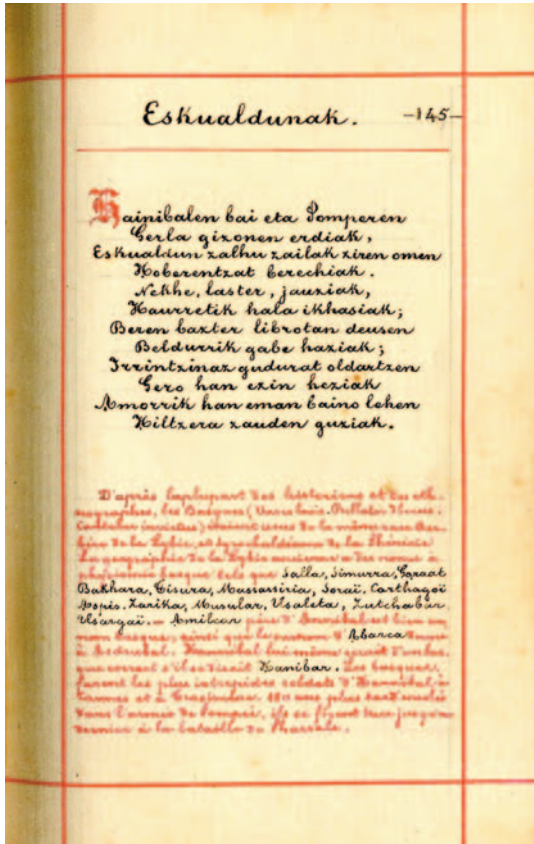 Eskualdunak. -145-
Hainibalen bai eta Pomperen
Gerla gizonen erdiak,
Eskualdun zalhu zailak ziren omen
Hoberentzat berechiak.
Nekhe, laster, jauziak,
Haurretik hala ikhasiak;
Beren bazter librotan deusen
Beldurrik gabe haziak;
Irrintzinaz gudurat oldartzen
Gero han ezin heziak
Amorrik han eman baino lehen
Hiltzera zauden guziak.
D'après la plupart des historiens et des eth-
nographes, les Basques (
) étaient issus de la même race
de la Lybie, et de la Phénicie
La géographie de la Lybie ancienne a des noms à
physionomie basque tels que Salla, Simurra, Garaat
Bakhara, Tisura, Massassiria, Soraï, Carthagoï
Aspis, Zarika, Musular, Usaleta, Zutchabar,
Usargaï. — Amilcar père d'Annibal est bien un
nom basque, ainsi que le surnom d'Abarca donné
à Asdrubal. Hannibal lui même
que s'il se disait Hanibar. Les basques
furent les plus intrépides soldats d'Hannibal à
Cannes et à Trasimène. 180 ans plus tard
dans l'armée de Pompée, ils se firent tuer jusqu'au
dernier à la bataille de Pharsale.